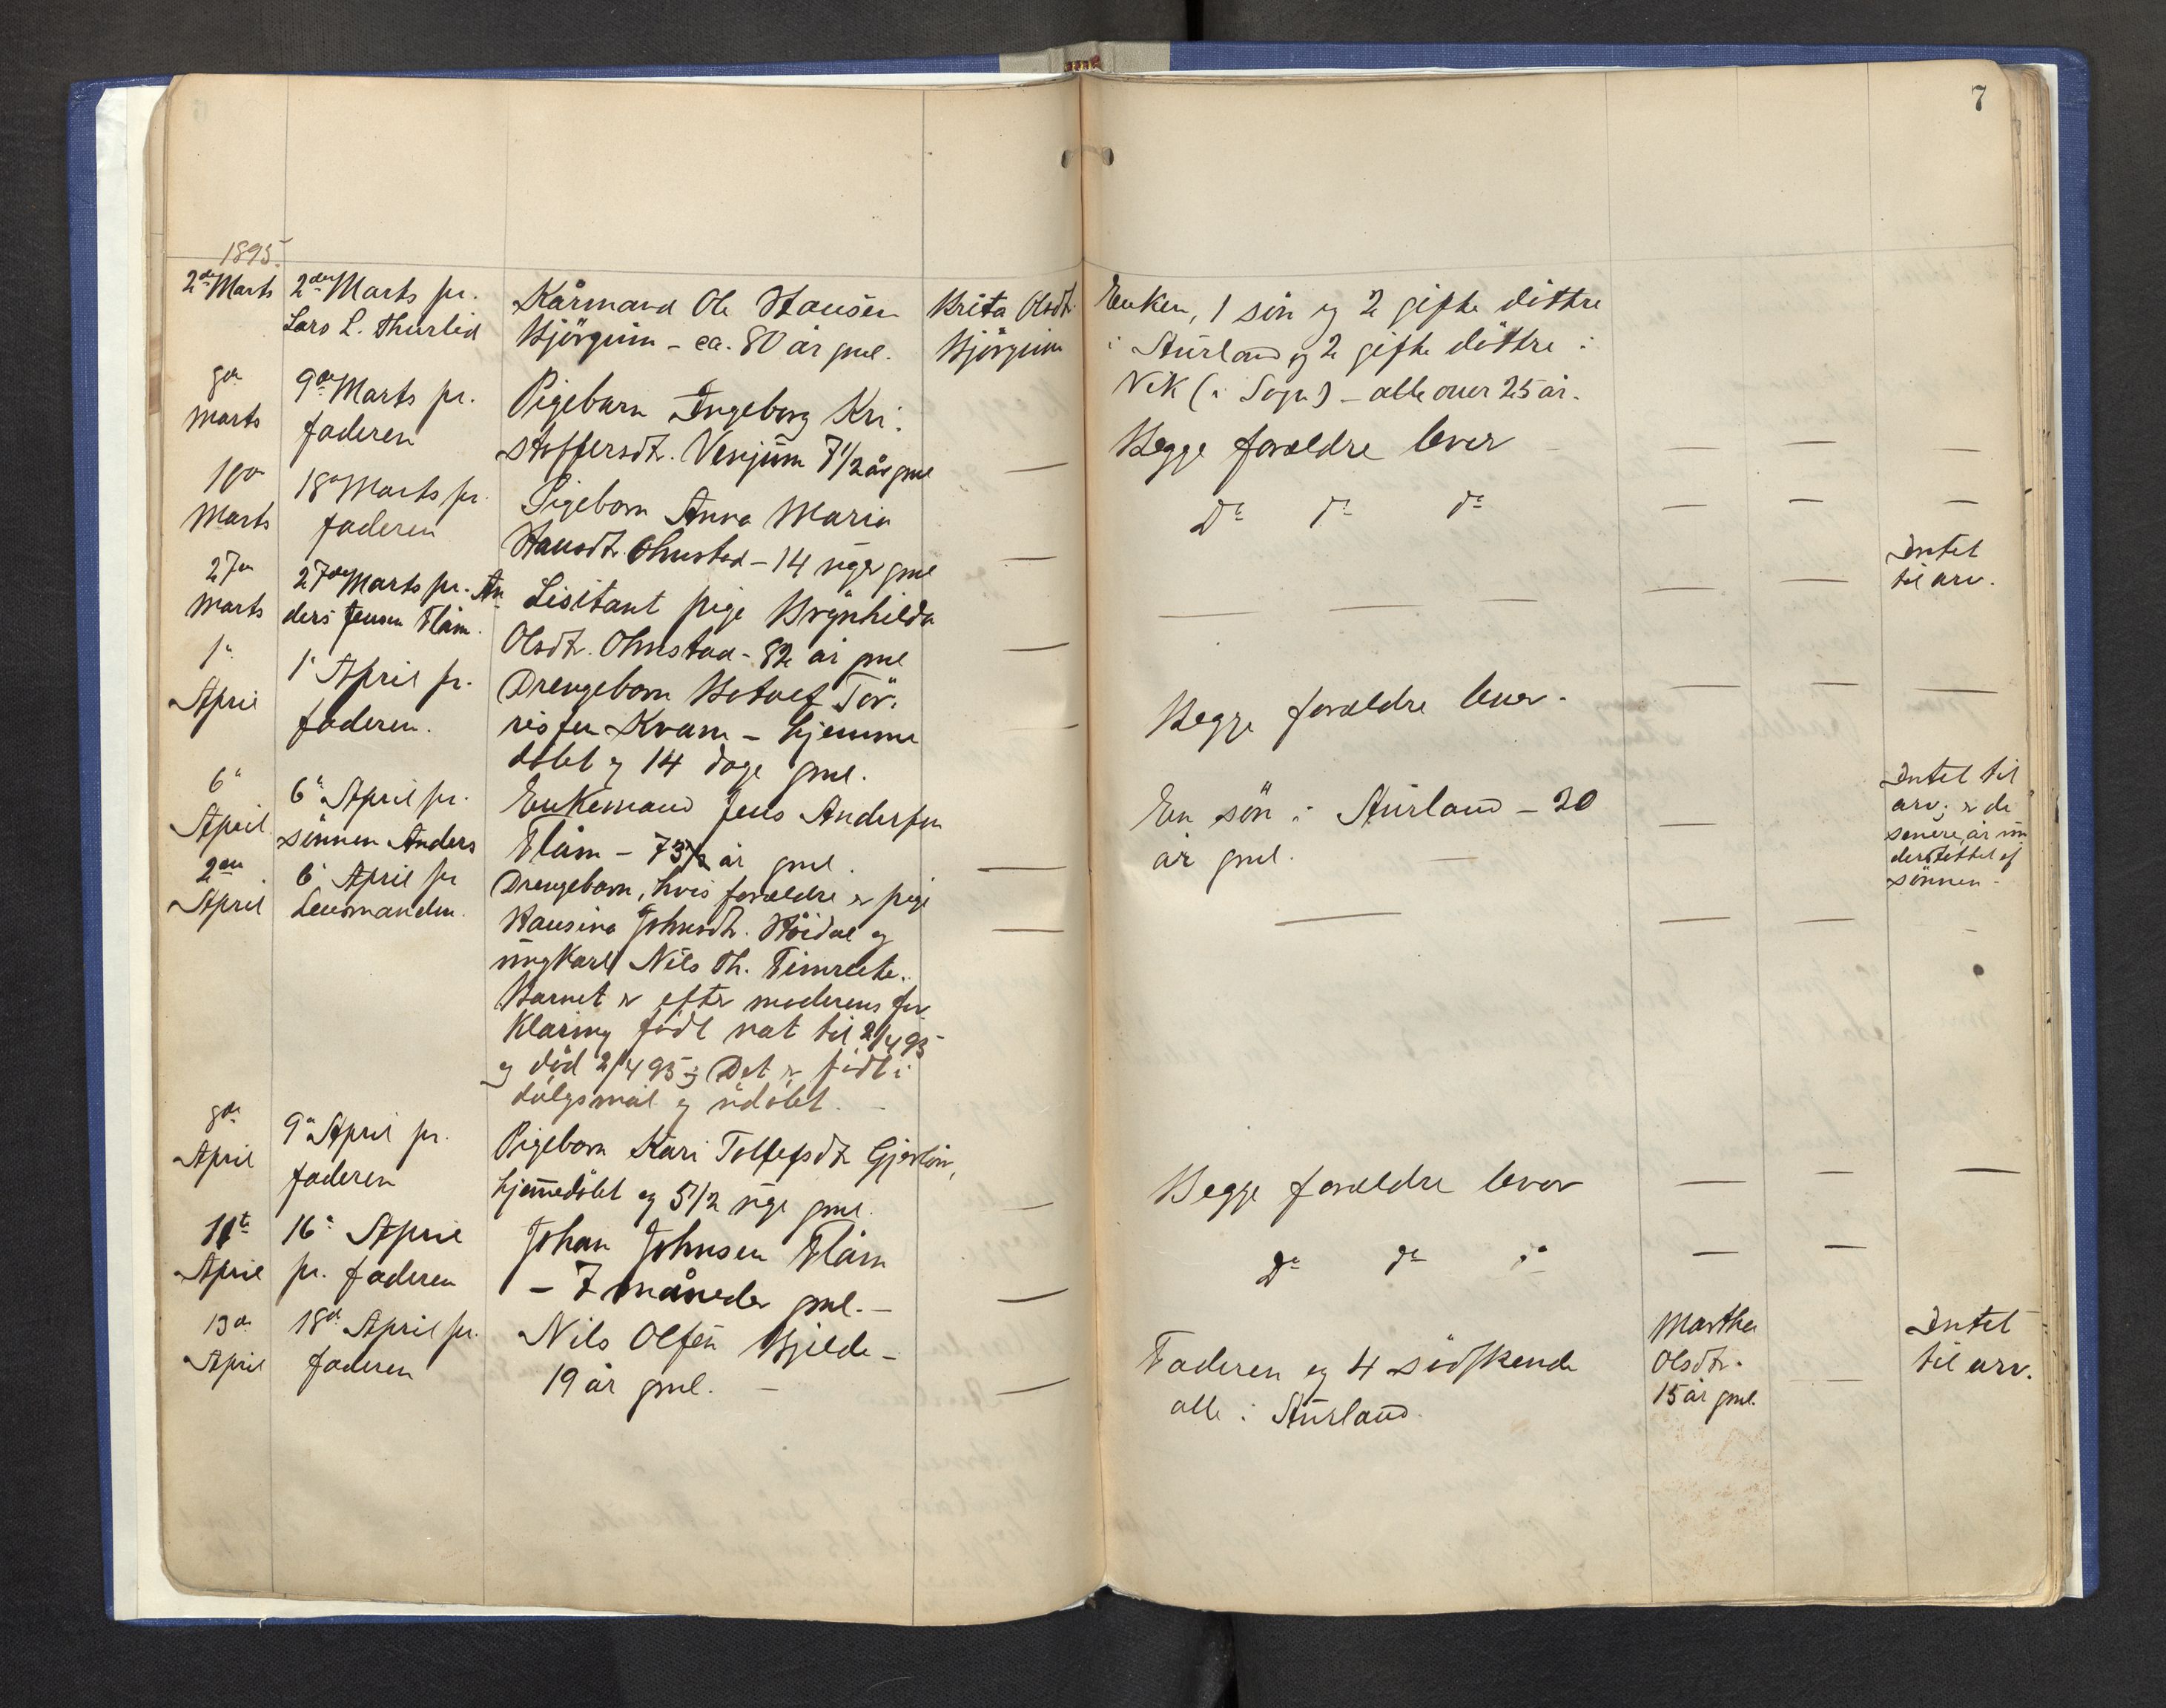 7
1895.
2de Marts
2den Marts pr.
Lars L. Thurlid
Kårmand Ole Hansen
Bjørgum - ca. 80 år gml.
Brita Olsdt.
Bjørgum
Enken, 1 søn og 2 gifte døttre
i Aurland og 2 gifte døttre i
Vik (i Sogn) - alle over 25 år.
9de
Marts
9de Marts pr.
faderen
Pigebarn Ingeborg Kri-
stoffersdt. Venjum 7 1/2 år gml
—
Begge forældre lever
— — —
Marts
18de Marts pr.
faderen
Pigebarn Anna Maria
Hansdt. Ohnstad - 14 uger gml
—
Do do do
— — —
27de
Marts
27de Marts pr. An
ders Jensen Flåm.
Lisitant pige Brynhilda
Olsdt. Ohnstad - 82 år gml
—
— — —
— —
Intet
til arv.
1ste
April
1ste April pr.
faderen.
Drengebarn Botolf Tor-
risen Kvam - hjemme
døbt og 14 dage gml.
—
Begge forældre lever.
— — —
6te
April
6te April pr.
sønnen Anders
Enkemand Jens Andersen
Flåm - 73 1/2 år gml.
—
En søn i Aurland - 30
år gml.
—
—
Intet til
arv; er de
senere år un
derstøttet af
sønnen -
2den
April
6te April pr
Lensmanden.
Drengebarn, hvis forældre er pige
Hansina Johnsdt. Høidal og
ungkarl Nils Th. Fimreite.
Barnet er efter moderens for
klaring født nat til 2/4 95
og død 2/4 95; Det er født i
dølgsmål og udøbt. -
—
—
— —
9de
April
9de April pr.
faderen
Pigebarn Kari Tollefsdt
hjemmedøbt og 5 1/2 uge gml.
—
Begge forældre lever
— — —
11te
April
16de April
pr. faderen
Johan Johnsen Flåm
- 7 måneder gml. -
—
Do do do
— —
13de
April
18de April pr.
faderen
Nils Olsen Bjelde -
19 år gml. -
—
Faderen og 4 sødskende
alle i Aurland.
Martha
Olsdt.
15 år gml.
—
Intet
til arv.